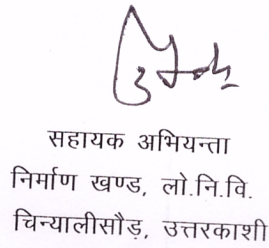 सहायक अभियन्ता
निर्माण खण्ड, लो.नि.वि.
चिन्यालीसौड़, उत्तरकाशी